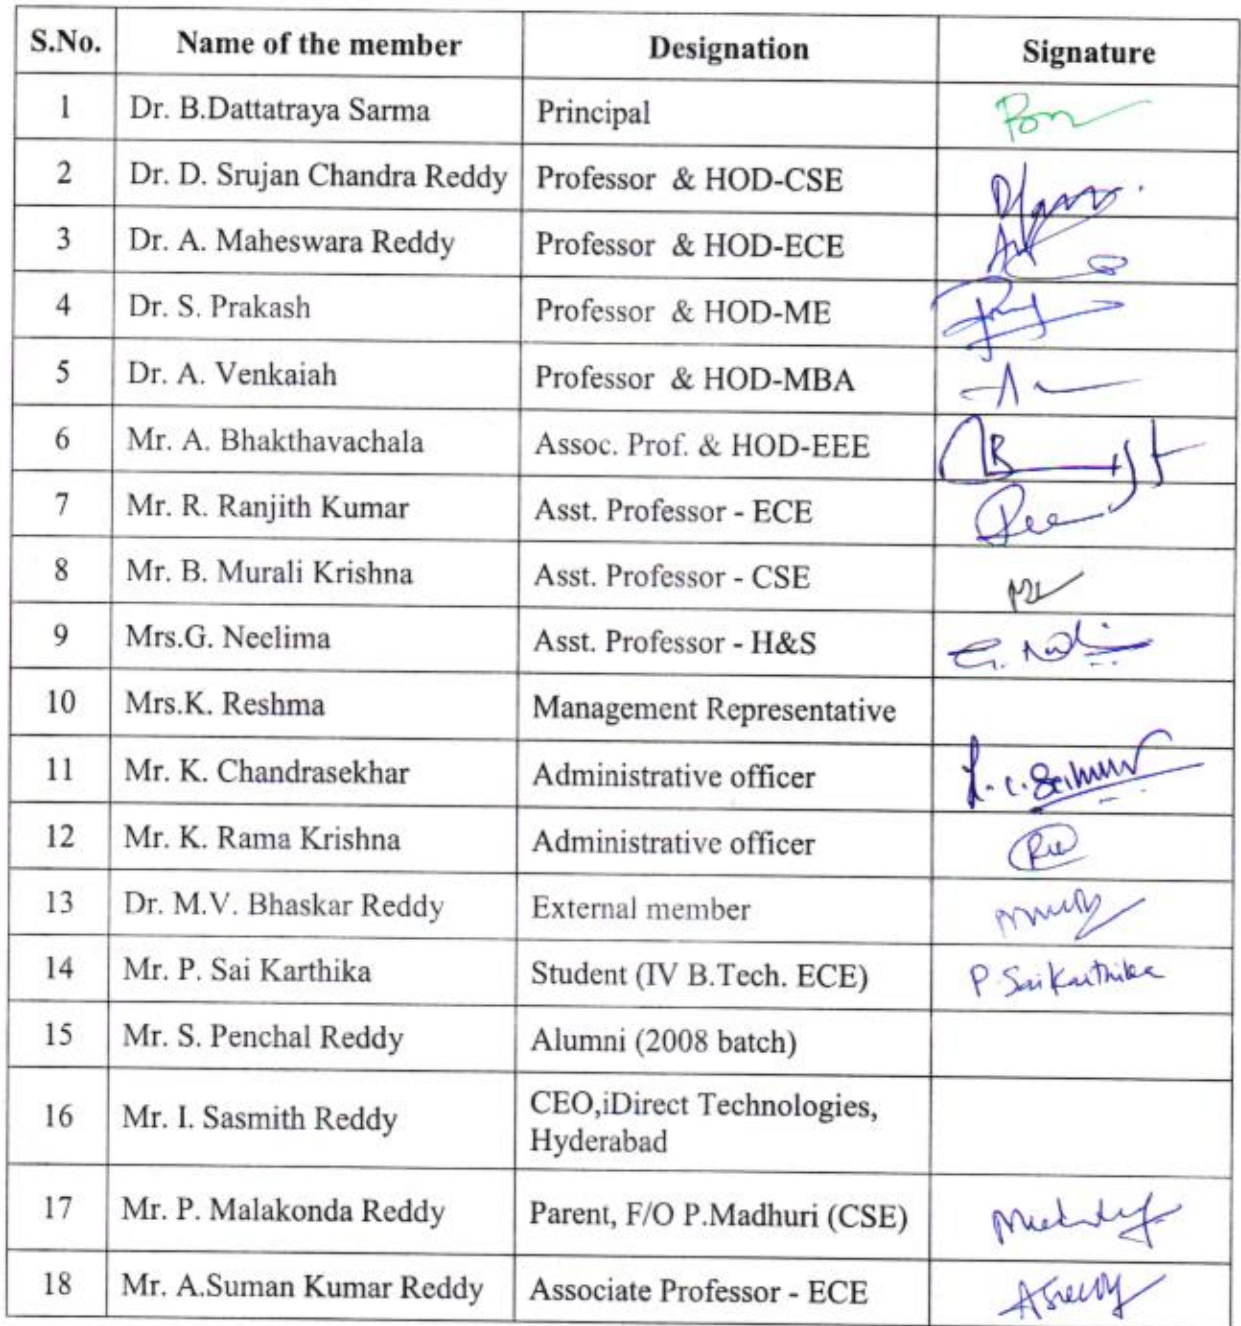 S.No. Name of the member Designation Signature
1 Dr. B.Dattatraya Sarma Principal
2 Dr. D. Srujan Chandra Reddy Professor & HOD-CSE
3 Dr. A. Maheswara Reddy Professor & HOD-ECE
4 Dr. S. Prakash Professor & HOD-ME
5 Dr. A. Venkaiah Professor & HOD-MBA
6 Mr. A. Bhakthavachala Assoc. Prof. & HOD-EEE
7 Mr. R. Ranjith Kumar Asst. Professor - ECE
8 Mr. B. Murali Krishna Asst. Professor - CSE
9 Mrs.G. Neelima Asst. Professor - H&S
10 Mrs.K. Reshma Management Representative
11 Mr. K. Chandrasekhar Administrative officer
12 Mr. K. Rama Krishna Administrative officer
13 Dr. M.V. Bhaskar Reddy External member
14 Mr. P. Sai Karthika Student (IV B.Tech. ECE) P. Sai Karthika
15 Mr. S. Penchal Reddy Alumni (2008 batch)
16 Mr. I. Sasmith Reddy CEO,iDirect Technologies,
Hyderabad
17 Mr. P. Malakonda Reddy Parent, F/O P.Madhuri (CSE)
18 Mr. A.Suman Kumar Reddy Associate Professor - ECE